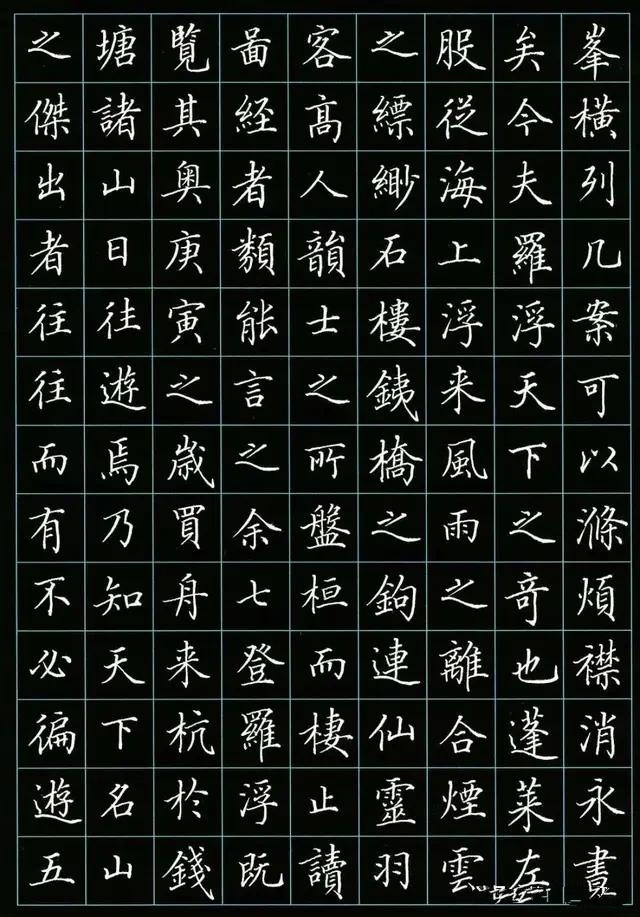 峯橫列几案可以滌煩襟消永晝
矣今夫羅浮天下之竒也蓬萊左
股從海上浮来風雨之離合煙雲
之縹緲石樓銕橋之鉤連仙靈羽
客高人韻士之所盤桓而棲止讀
啚経者類能言之余七登羅浮既
覧其奥庚寅之嵗買舟来杭於錢
塘諸山日往遊焉乃知天下名山
之傑出者往往而有不必徧遊五